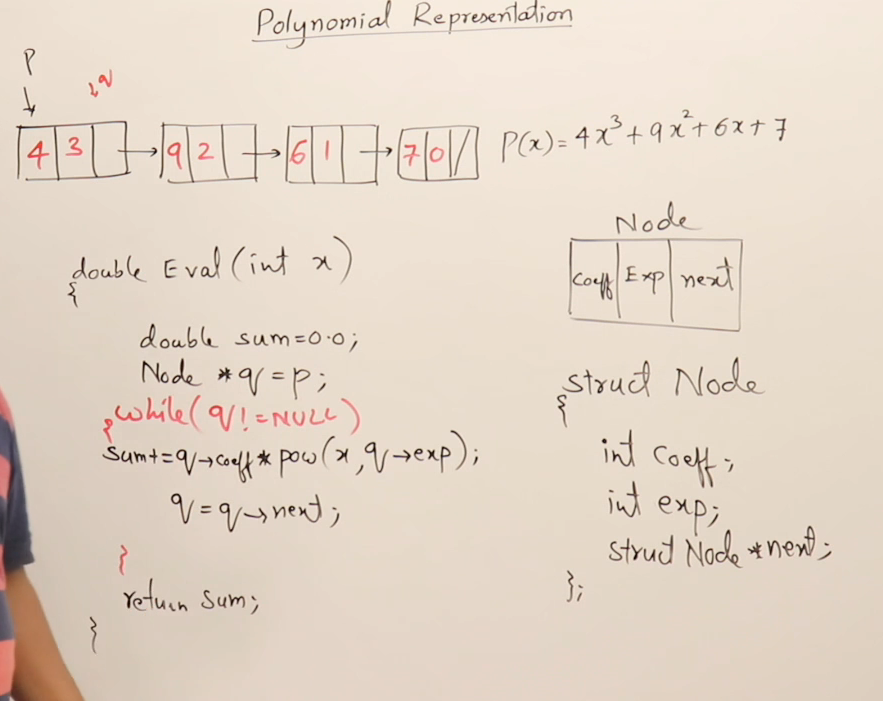 Polynomial Representation
P
q
4 3 9 2 6 1 7 0 /
P(x) = 4x³ + 9x² + 6x + 7
Node
Coeff Exp next
double Eval (int x)
{
double sum=0.0;
Node *q = p;
while(q!=NULL)
{
sum+=q→coeff* pow(x,q→exp);
q = q→next;
}
return sum;
}
struct Node
{
int coeff;
int exp;
struct Node *next;
};